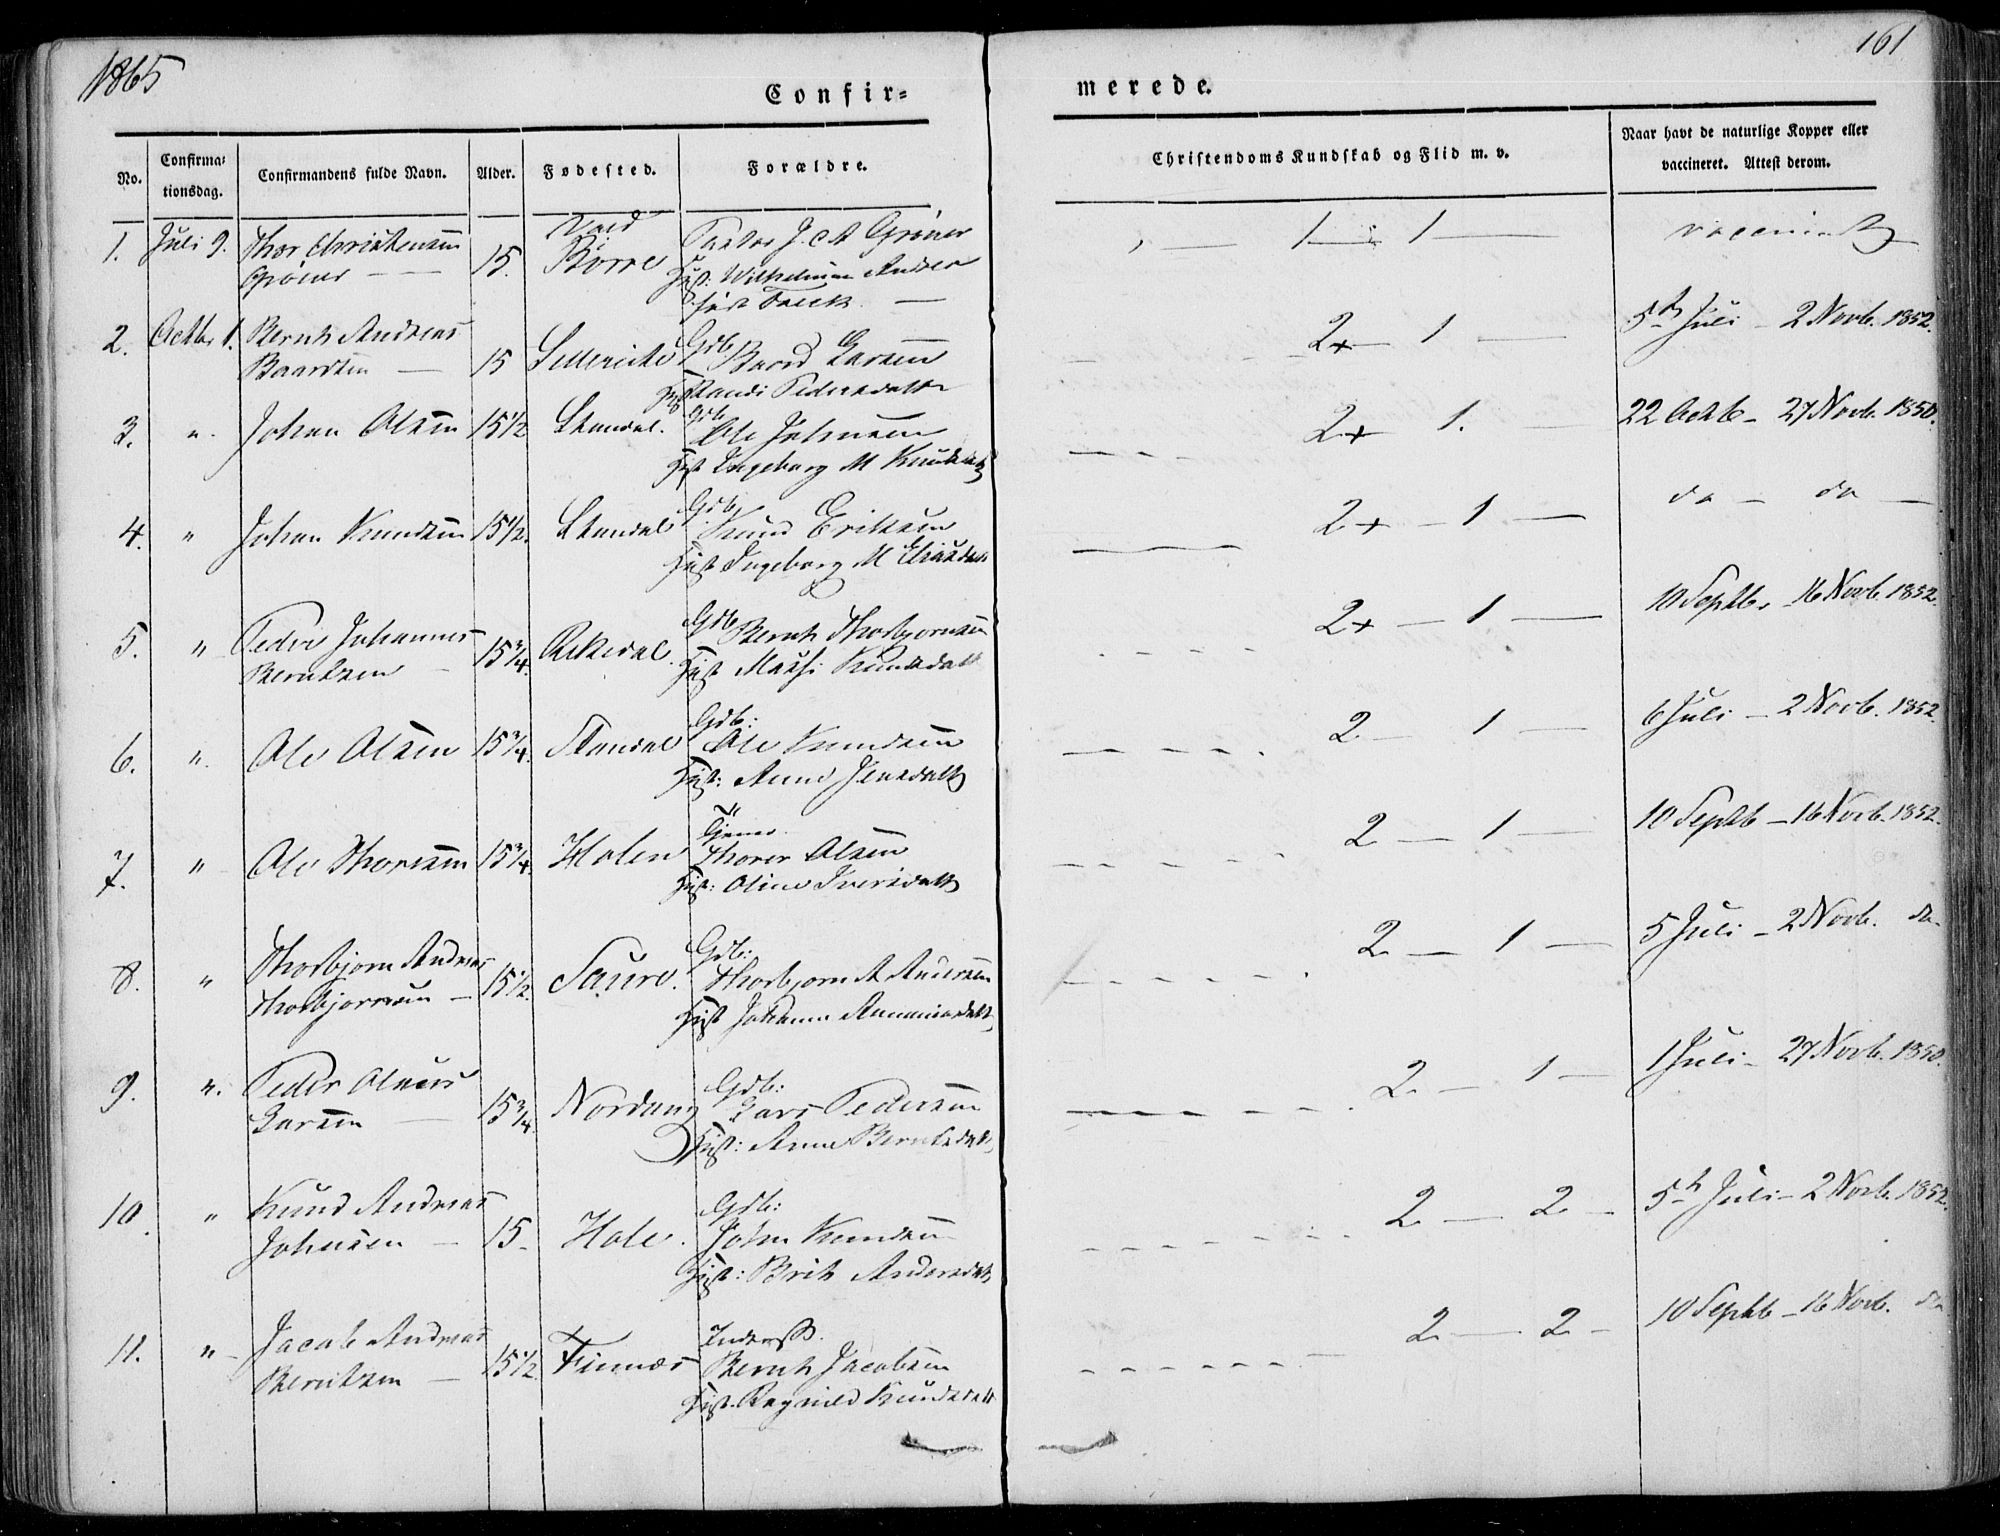 1865
161
Confir=
merede.
No.
Confirma=
tionsdag.
Confirmandens fulde Navn.
Alder.
Fødested.
Forældre.
Christendoms Kundskab og Flid m. v.
Naar havt de naturlige Kopper eller
vaccineret. Attest derom.
1. Juli 9. Thor Christensen
Grøner 15. Vold
Børre Pastor J. C. A Grøner
Hust: Wilhelmine Andrea
født Falck
1 1
2. Octbr 1. Bernt Andreas
Baardsen 15 Gdb Baard Larsen
Hust Randi Pedersdatter
2+ 1 5te Juli - 2 Novb. 1852.
3. " Johan Olsen 15 1/2 Standal. Gdb
Ole Johnsen
Hust Ingeborg M Knudsdatt
2+ 1. 22 Octb - 27 Novb. 1850.
4. " Johan Knudsen 15 1/2. Standal Gdb
Knud Eriksen
Hust Ingeborg M
2+ - 1 do - do
5. " Peder Johannes
Berntsen 15 3/4. Rekedal. Gdb Bernt Thorbjørnsen
Hust Knudsdatt
2+ - 1 10 Septb. 16 Novb. 1852.
6. " Ole Olsen 15 3/4. Standal Gdb:
Ole Knudsen
Hust: Anne Jensdatt
2 - 1 6 Juli - 2 Novb. 1852.
7. " Ole Thorsen 15 3/4. Holen
Thorer Olsen
Hust: Oline Iversdatt
2 - 1 10 Septb - 16 Novb. 1852.
8. " Thorbjørn Andreas
Thorbjørnsen 15 1/2. Saure. Gdb:
Thorbjørn A Andersen
Hust Johanne
2 - 1 5 Juli - 2 Novb. do
9. " Peder Olaus
Larsen 15 3/4. Nordang Gdb:
Lars Pedersen
Hust: Anne Berntsdatt
2 - 1 1 Juli - 27 Novb. 1850.
10. " Knud Andreas
Johnsen 15. Hole. Gdb:
John Knudsen
Hust: Brit Andersdatt
2 - 2 5te Juli - 2 Novb. 1852.
11. " Jacob Andreas
Berntsen 15 1/2 Finnæs Inderst
Bernt Jacobsen
Hust. Ragnild Knudsdatt
2 - 2 10 Septb - 16 Novb. do